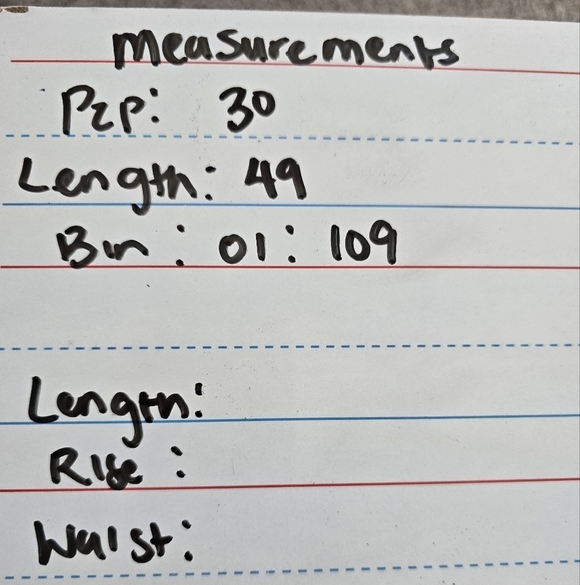 measurements
P2P: 30
Length: 49
Bin: 01: 109
Length:
Rise:
Waist: